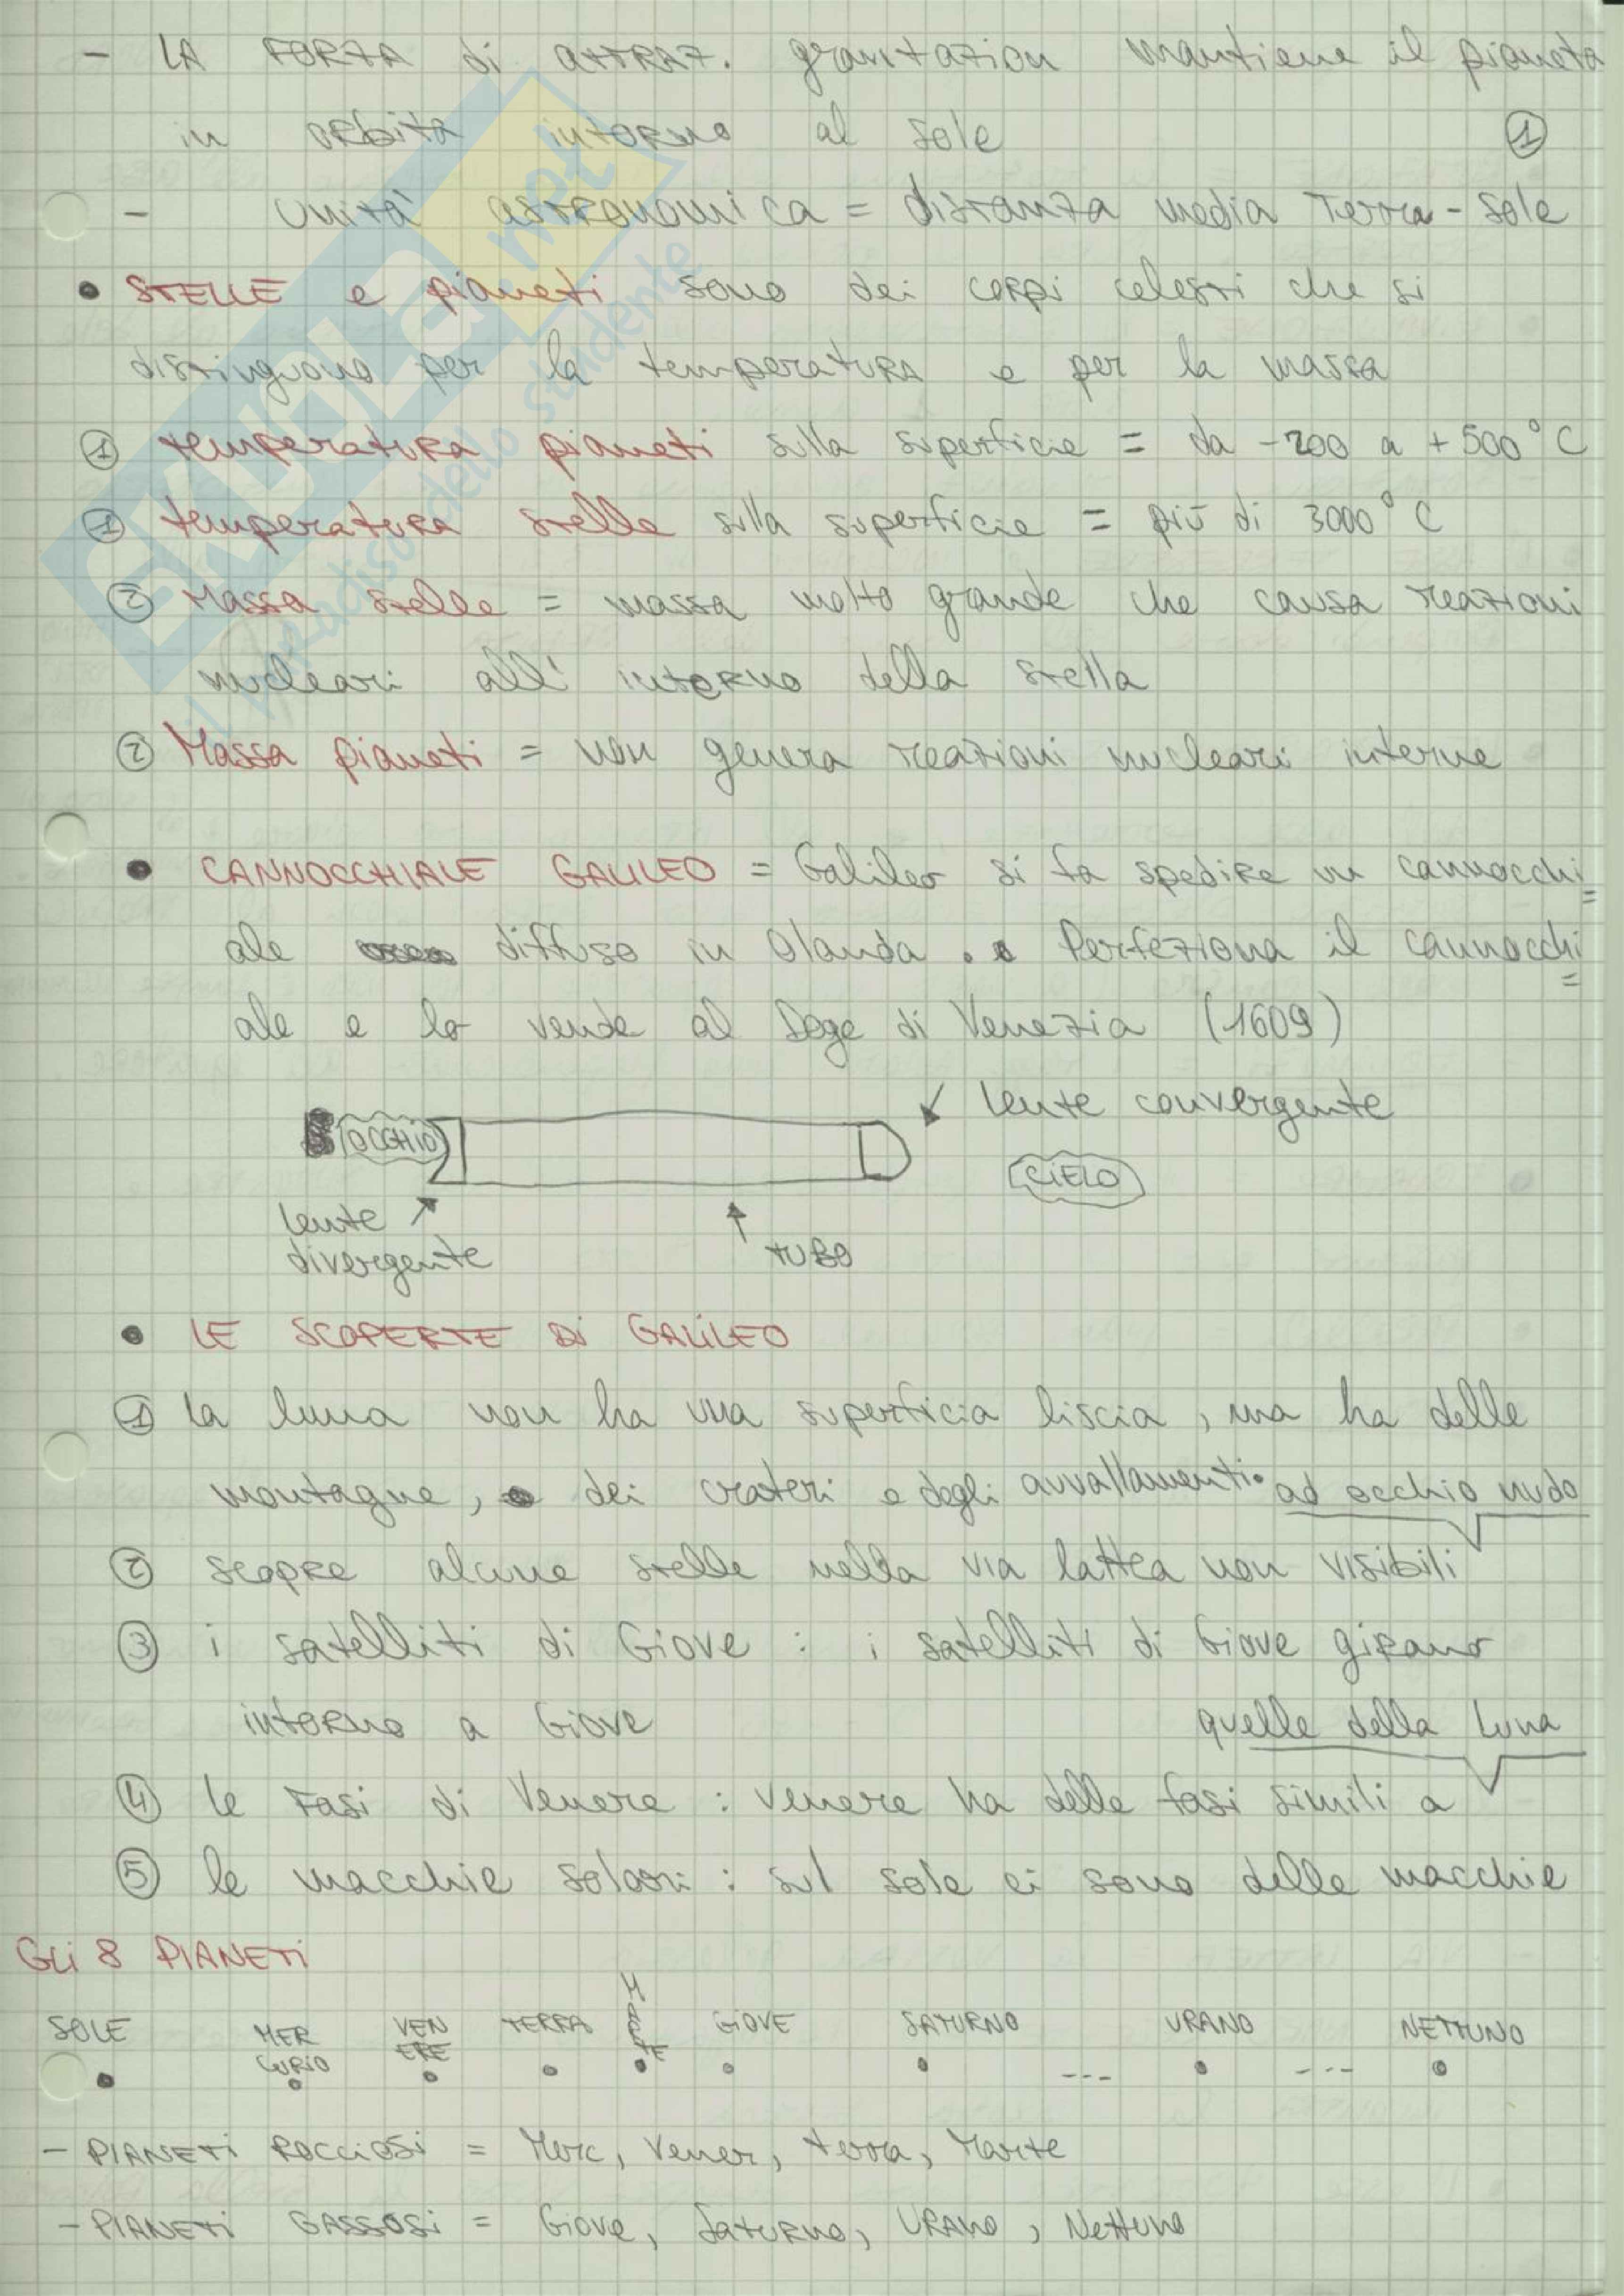 - LA FORZA di attraz. gravitazion mantiene il pianeta
in orbita intorno al sole ①
- Unità astronomica = distanza media Terra - Sole
• STELLE e pianeti sono dei corpi celesti che si
distinguono per la temperatura e per la massa
① temperatura pianeti sulla superficie = da -200 a +500°C
① temperatura stelle sulla superficie = più di 3000°C
② Massa stelle = massa molto grande che causa reazioni
nucleari all'interno della stella
② Massa pianeti = non genera reazioni nucleari interne
• CANNOCCHIALE GALILEO = Galileo si fa spedire un cannocchi=
ale diffuso in Olanda. Perfeziona il cannocchi=
ale e lo vende al Doge di Venezia (1609)
lente convergente
OCCHIO
CIELO
lente
divergente
TUBO
• LE SCOPERTE DI GALILEO
① La luna non ha una superficia liscia, ma ha delle
montagne, dei crateri e degli avvallamenti.
ad occhio nudo
② scopre alcune stelle nella via lattea non visibili
③ i satelliti di Giove : i satelliti di Giove girano
intorno a Giove
quelle della Luna
④ le Fasi di Venere : Venere ha delle fasi simili a
⑤ le macchie solari : sul sole ci sono delle macchie
Gli 8 PIANETI
SOLE MERCURIO VENERE TERRA MARTE GIOVE SATURNO URANO NETTUNO
- PIANETI ROCCIOSI = Merc, Vener, terra, Marte
- PIANETI GASSOSI = Giove, Saturno, URANO, Nettuno
SKUOLA.net
il paradiso dello studente